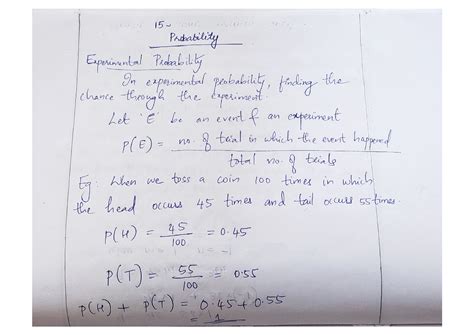 15-
Probability
Experimental Probability
In experimental probability, finding the
chance through the experiment.
Let 'E' be an event of an experiment
P(E) = no. of trial in which the event happened
total no. of trials
Eg: When we toss a coin 100 times in which
the head occurs 45 times and tail occurs 55 times.
P(H) = 45/100 = 0.45
P(T) = 55/100 = 0.55
P(H) + P(T) = 0.45 + 0.55
= 1